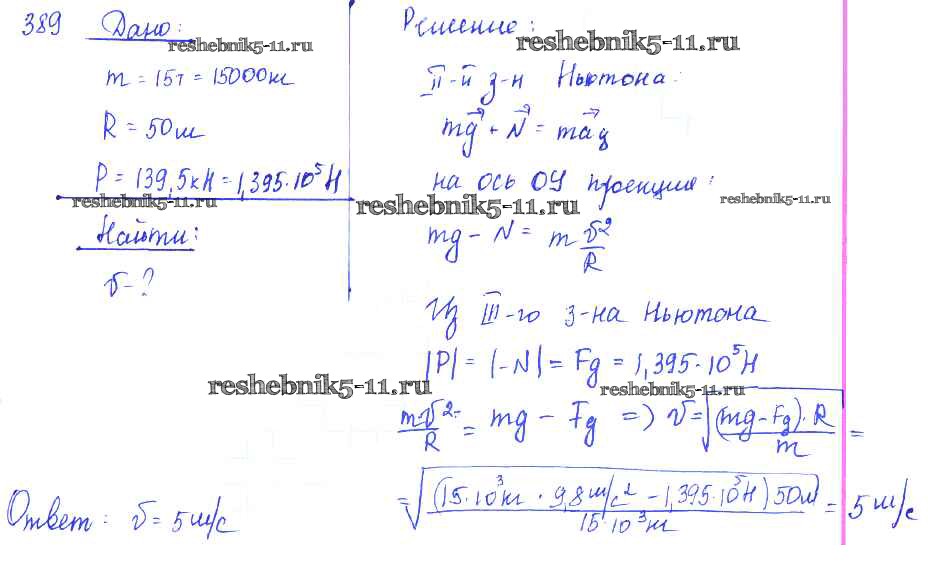 389 Дано:
reshebnik5-11.ru
m = 15т = 15000кг
R = 50м
P = 139,5кН = 1,395·10⁵Н
reshebnik5-11.ru
Найти:
v - ?
Решение:
reshebnik5-11.ru
II-й з-н Ньютона:
mg⃗ + N⃗ = ma⃗ц
на ось ОУ проекция:
reshebnik5-11.ru
reshebnik5-11.ru
mg - N = m v²/R
Из III-го з-на Ньютона
|P| = |-N| = Fg = 1,395·10⁵Н
reshebnik5-11.ru
reshebnik5-11.ru
mv²/R = mg - Fg => v = √((mg - Fg)·R/m) =
= √((15·10³кг · 9,8м/с² - 1,395·10⁵Н) 50м/15·10³кг) = 5 м/с
Ответ: v = 5 м/с